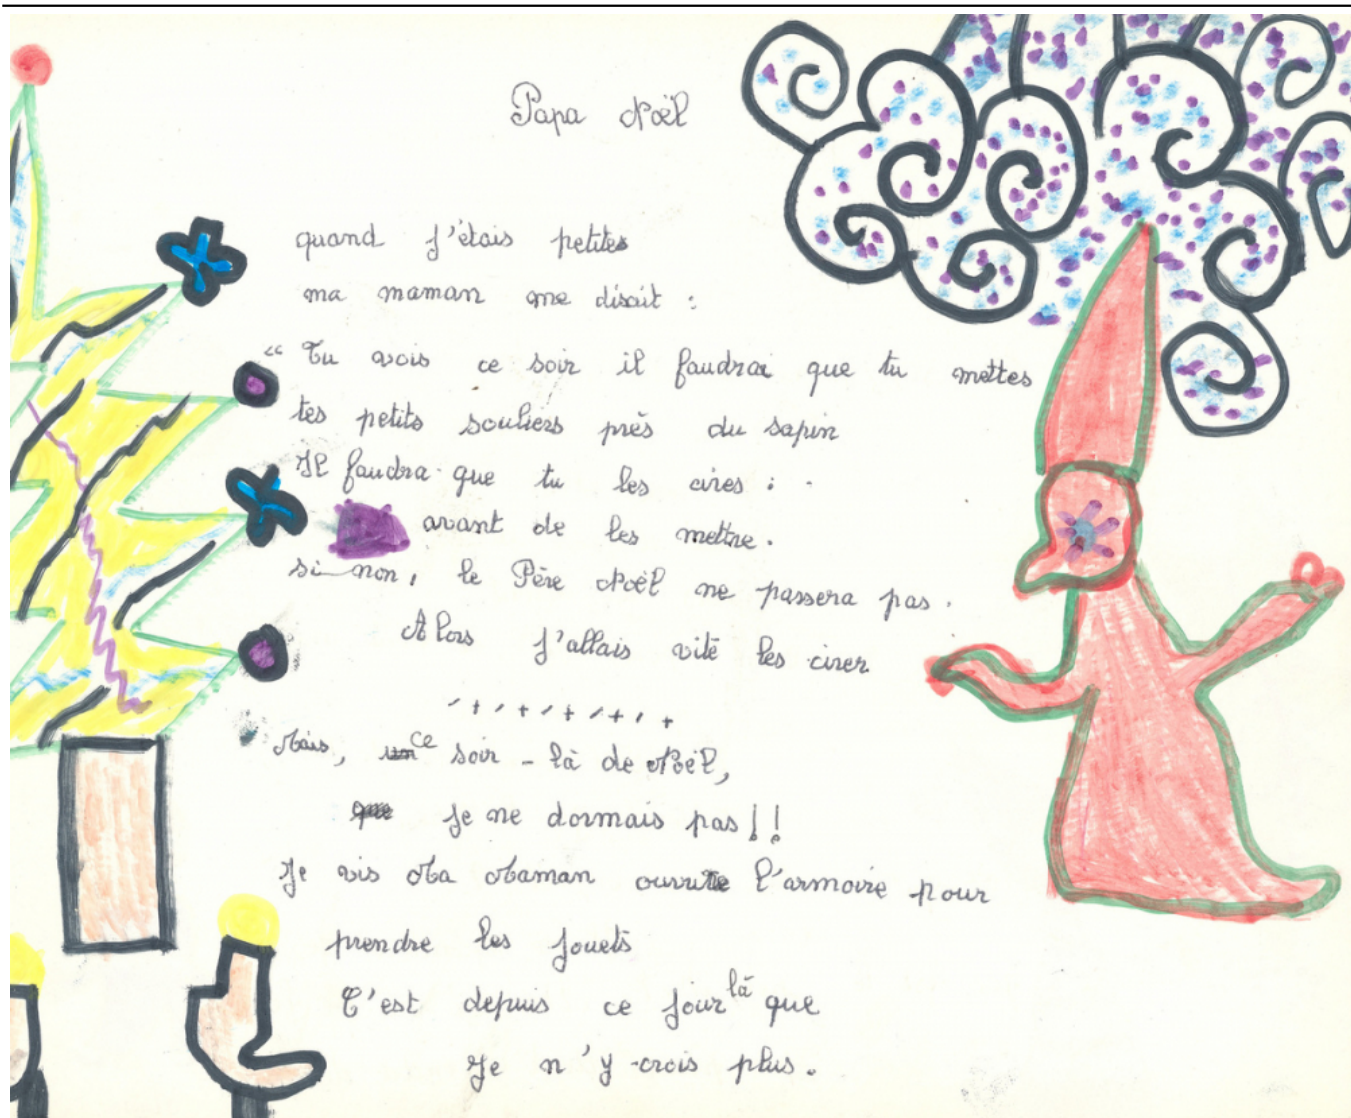 Papa Noël
quand j'étais petites
ma maman me disait :
" Tu vois ce soir il faudrai que tu mettes
tes petits souliers près du sapin
Il faudra que tu les cires :
avant de les mettre.
si non, le Père Noël ne passera pas.
Alors j'allais vite les cirer
Mais, ce soir - là de Noël,
je ne dormais pas !!
Je vis Ma Maman ouvrire l'armoire pour
prendre les jouets
C'est depuis ce jour là que
Je n'y crois plus.